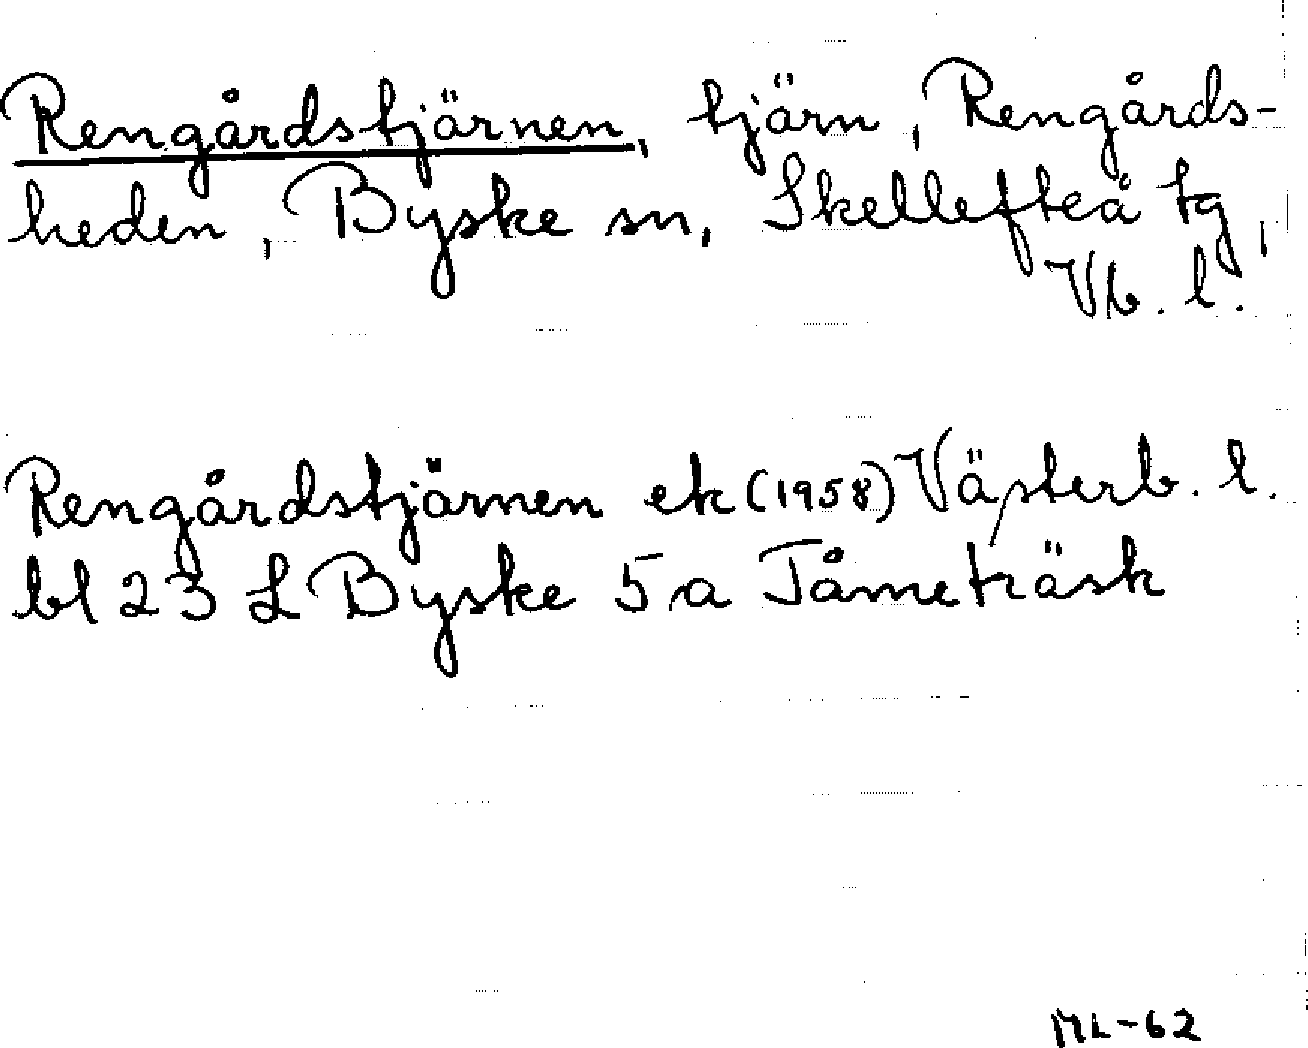 Rengårdstjärnen, tjärn, Rengårds-
heden, Byske sn, Skellefteå tg,
Vb. l.
Rengårdstjärnen ek (1958) Västerb. l.
bl 23 L Byske 5 a Tåmeträsk
ML-62